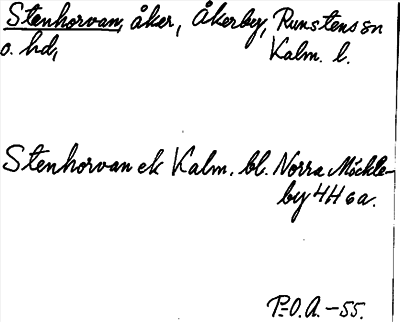 Stenhorvan, åker, Åkerby, Runstens sn
o. hd, Kalm. l.
Stenhorvan ek Kalm. bl. Norra Möckle-
by 4H 6a.
P-O.A. -55.